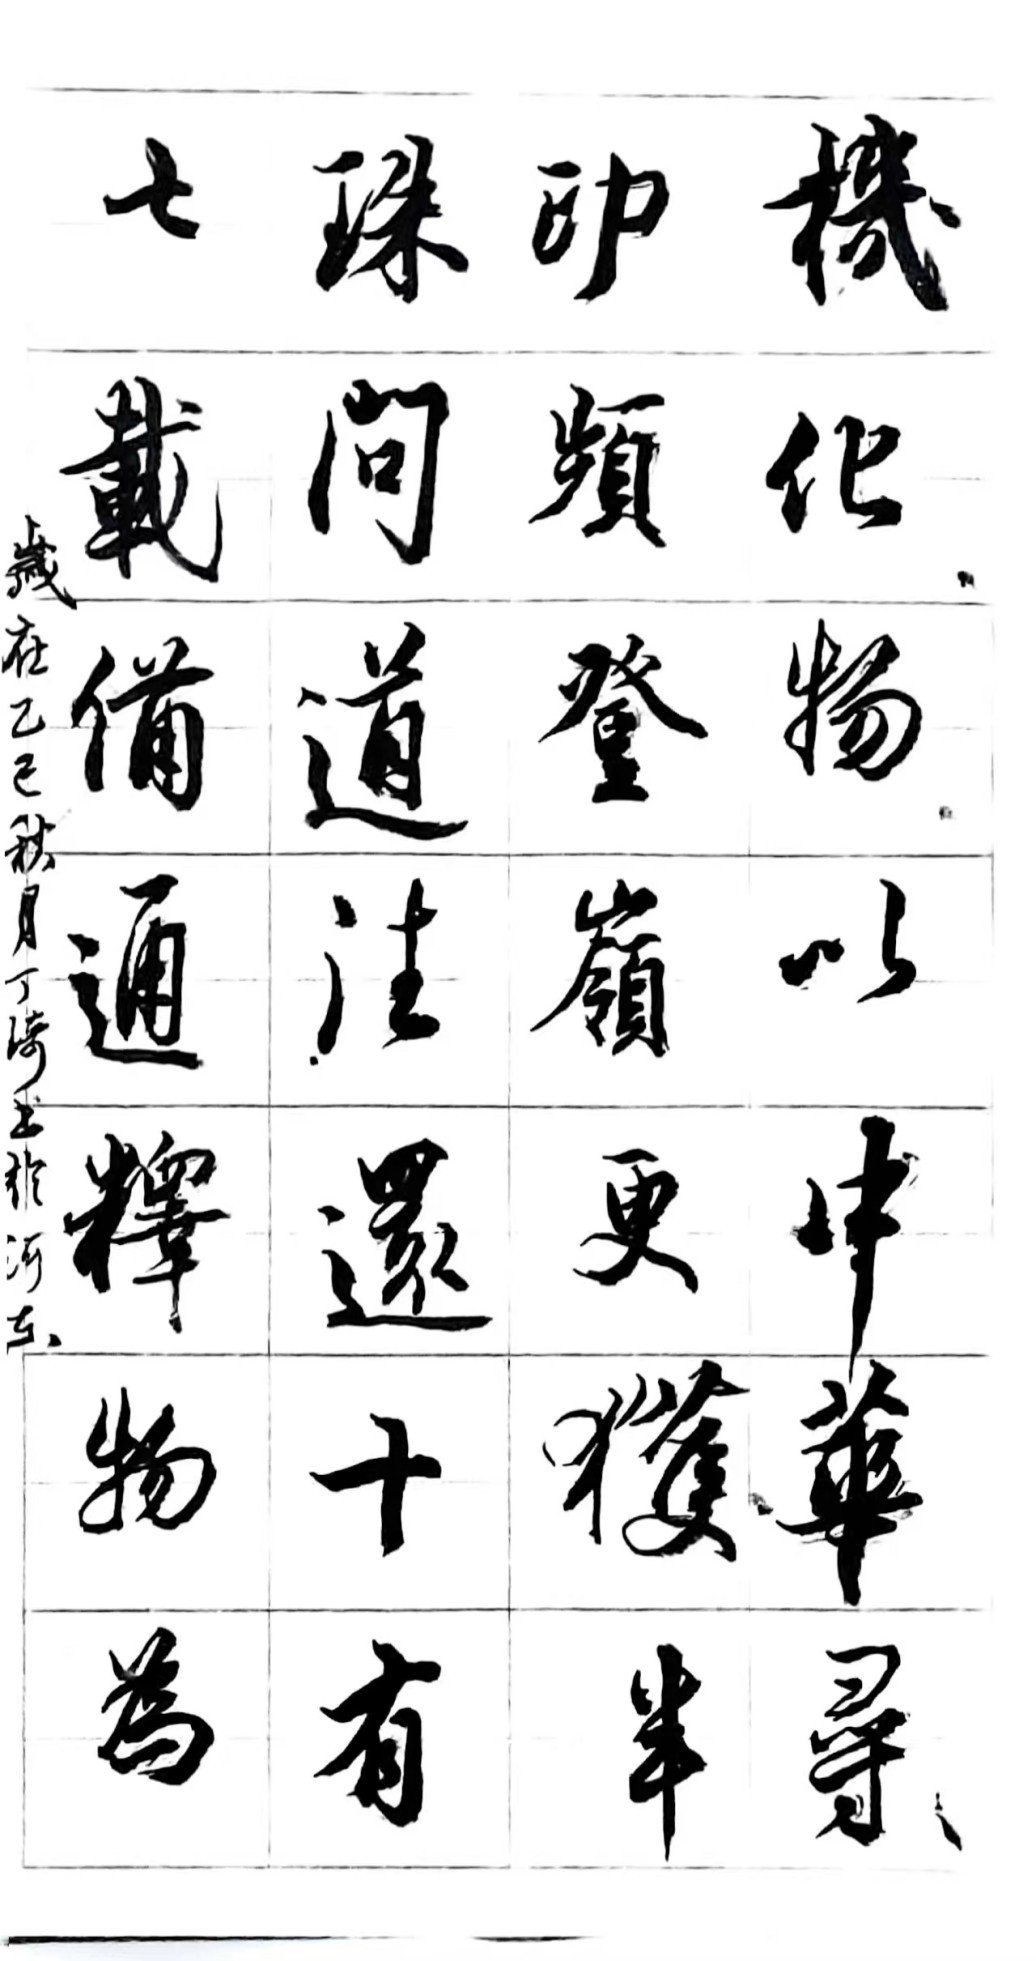 機化物以中華尋
印頻登嶺更獲半
珠問道法還十有
七載備通釋物為
歲在乙巳秋月丁琦书於河东